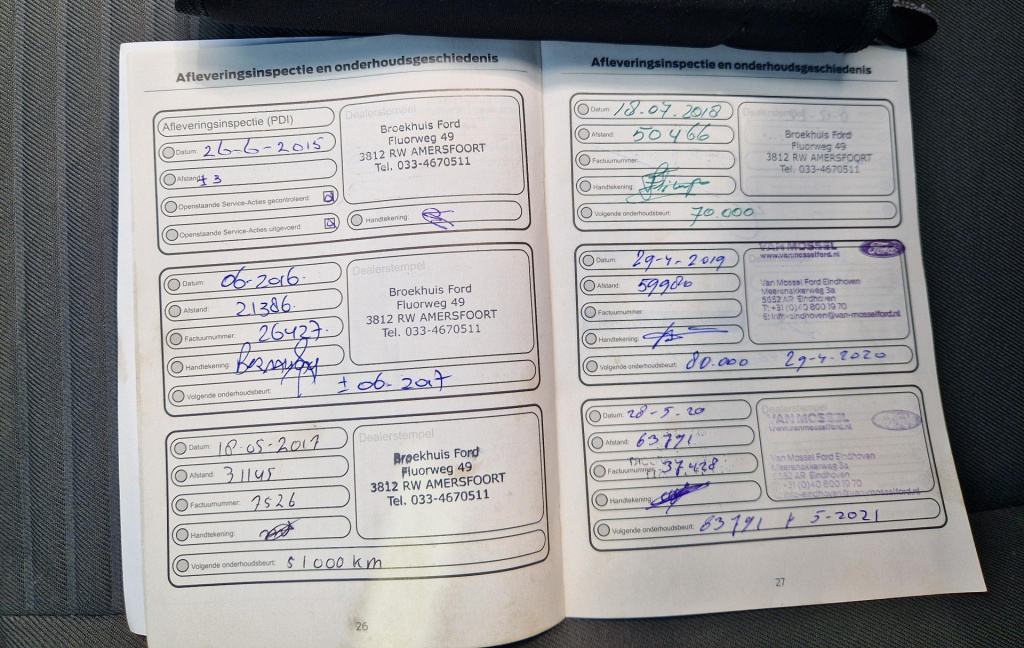 Afleveringsinspectie en onderhoudsgeschiedenis
Afleveringsinspectie (PDI)
Datum: 26-6-2015
Afstand: ± 3
Openstaande Service-Acties gecontroleerd:
Openstaande Service-Acties uitgevoerd:
Dealerstempel
Broekhuis Ford
Fluorweg 49
3812 RW AMERSFOORT
Tel. 033-4670511
Handtekening:
Datum: 06-2016.
Afstand: 21386.
Factuurnummer: 26427.
Handtekening:
Volgende onderhoudsbeurt: ± 06-2017
Dealerstempel
Broekhuis Ford
Fluorweg 49
3812 RW AMERSFOORT
Tel. 033-4670511
Datum: 18-05-2017
Afstand: 31145
Factuurnummer: 7526
Handtekening:
Volgende onderhoudsbeurt: 51000 km
Dealerstempel
Broekhuis Ford
Fluorweg 49
3812 RW AMERSFOORT
Tel. 033-4670511
26
Afleveringsinspectie en onderhoudsgeschiedenis
Datum: 18.07.2018
Afstand: 50466
Factuurnummer:
Handtekening:
Volgende onderhoudsbeurt: 70.000
Dealerstempel
Broekhuis Ford
Fluorweg 49
3812 RW AMERSFOORT
Tel. 033-4670511
Datum: 29-4-2019
Afstand: 59980
Factuurnummer:
Handtekening:
Volgende onderhoudsbeurt: 80.000 29-4-2020
VAN MOSSEL Ford
www.vanmosselford.nl
Van Mossel Ford Eindhoven
Meerenakkerweg 3a
5652 AR Eindhoven
T: +31 (0)40 800 19 70
E: info-eindhoven@van-mosselford.nl
Datum: 28-5-20
Afstand: 63791
Factuurnummer: 37428
Handtekening:
Volgende onderhoudsbeurt: 83791 5-2021
VAN MOSSEL
www.vanmosselford.nl
Van Mossel Ford Eindhoven
Meerenakkerweg 3a
5652 AR Eindhoven
+31 (0)40 800 19 70
27